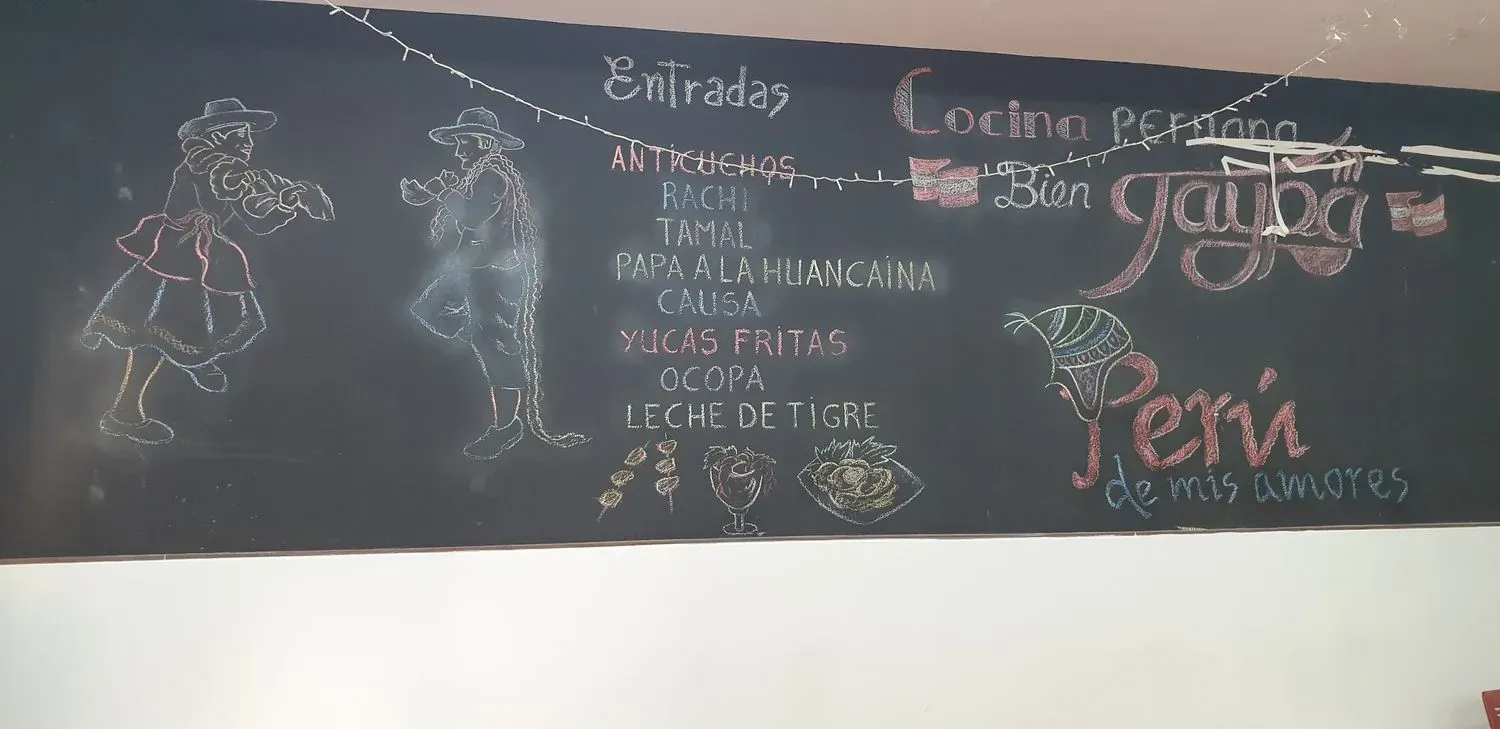 Entradas
ANTICUCHOS
RACHI
TAMAL
PAPA A LA HUANCAÍNA
CAUSA
YUCAS FRITAS
OCOPA
LECHE DE TIGRE
Cocina PERUANA
Bien Taypá
Perú
de mis amores